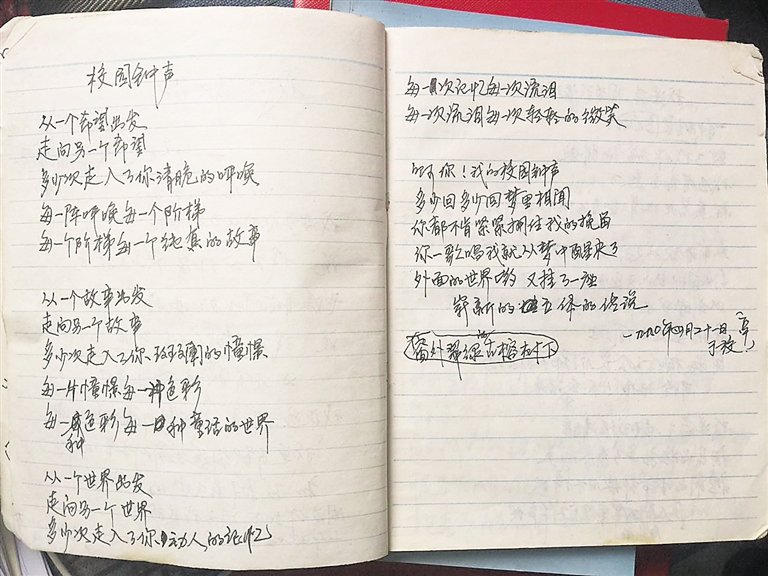 校园钟声
从一个希望出发
走向另一个希望
多少次走入了你清脆的呼唤
每一阵呼唤每一个阶梯
每一个阶梯每一个纯真的故事
从一个故事出发
走向另一个故事
多少次走入了你斑斓的憧憬
每一片憧憬每一种色彩
每一种色彩每一种童话的世界
从一个世界出发
走向另一个世界
多少次走入了你动人的记忆
每一次记忆每一次流泪
每一次流泪每一次轻轻的微笑
啊你！我的校园钟声
多少回多少回梦里相闻
你都不肯紧紧抓住我的挽留
你一歌唱我就从梦中醒来了
外面的世界哟 又挂了一座
崭新的立体的传说
一九九〇年四月二十一日
于
窗外翠绿的古榕树下